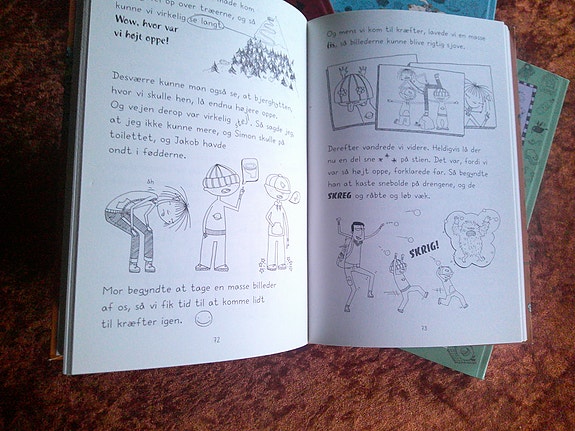 made kom
op over træerne, og så
kunne vi virkelig se langt.
Wow, hvor var
vi højt oppe!
Desværre kunne man også se, at bjerghytten,
hvor vi skulle hen, lå endnu højere oppe.
Og vejen derop var virkelig stejl. Så sagde jeg,
at jeg ikke kunne mere, og Simon skulle på
toilettet, og Jakob havde
ondt i fødderne.
åh
Mor begyndte at tage en masse billeder
af os, så vi fik tid til at komme lidt
til kræfter igen.
72
Og mens vi kom til kræfter, lavede vi en masse
fis, så billederne kunne blive rigtig sjove.
Derefter vandrede vi videre. Heldigvis lå der
nu en del sne på stien. Det var, fordi vi
var så højt oppe, forklarede far. Så begyndte
han at kaste snebolde på drengene, og de
SKREG og råbte og løb væk.
SKRIG!
73